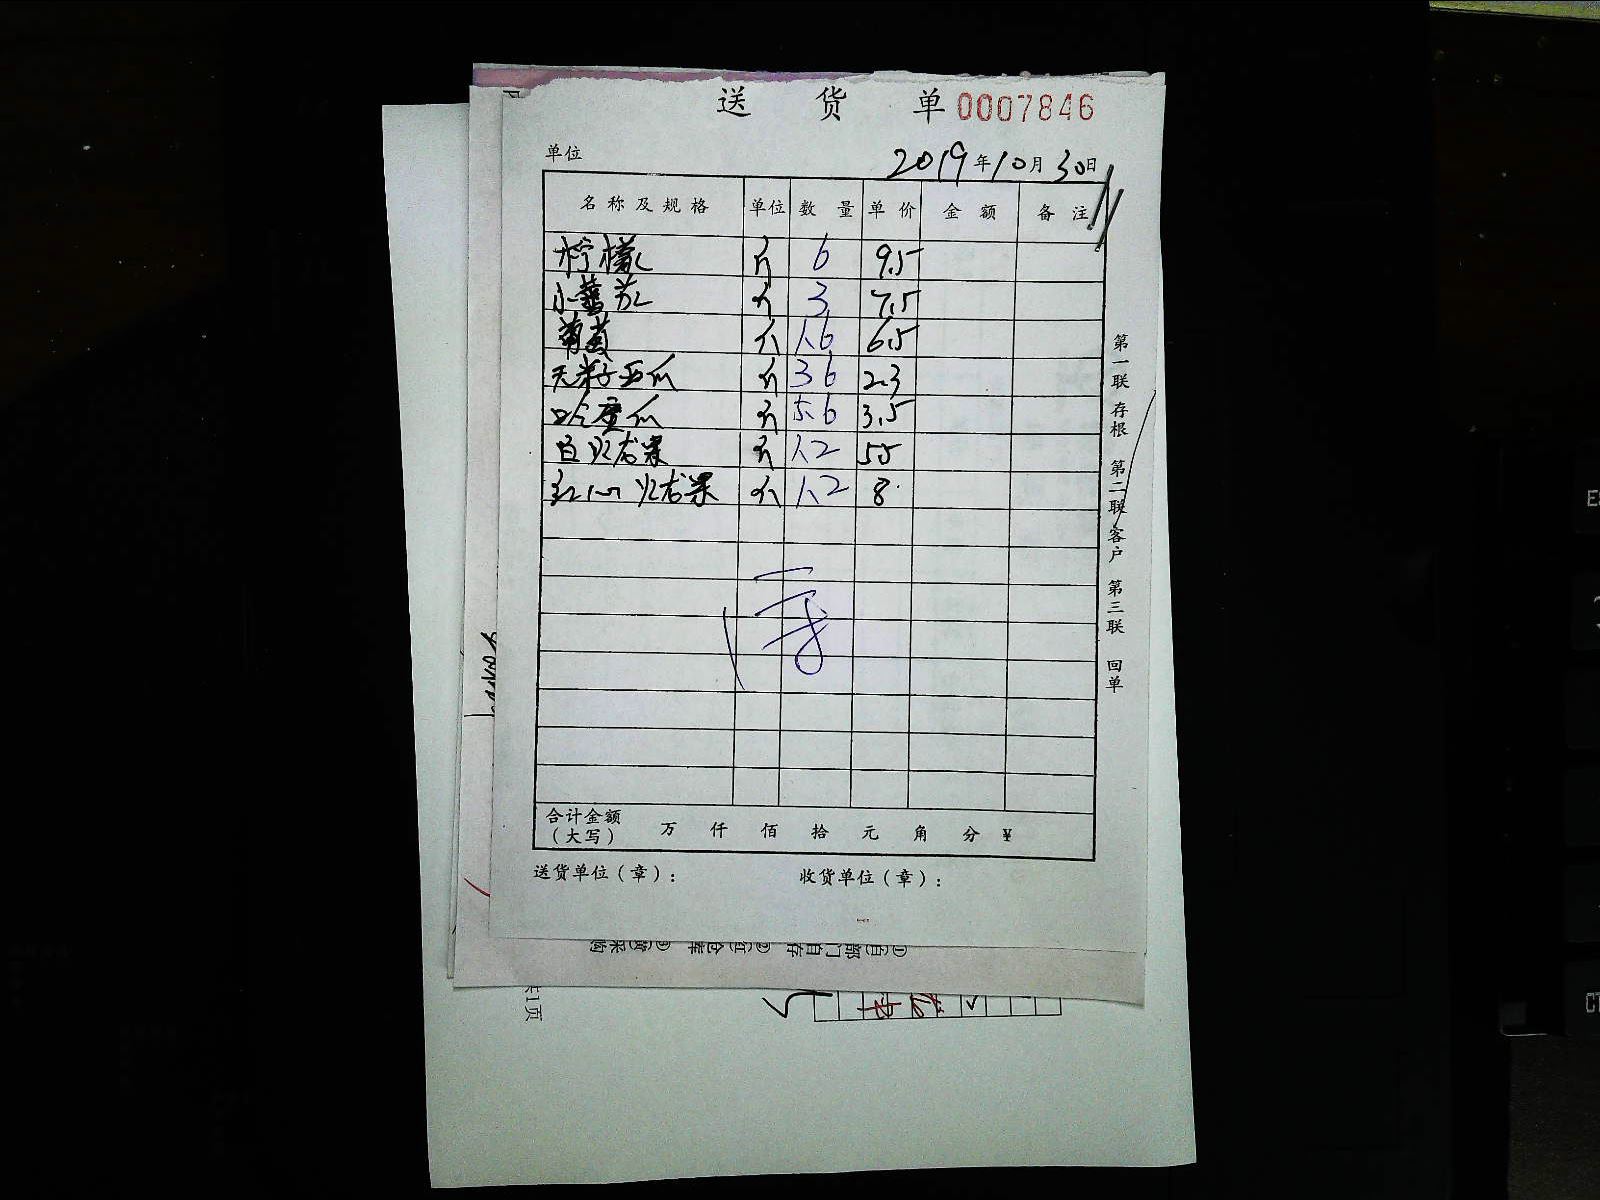 送 货 单 0007846
单位
2019年10月30日
名称及规格 单位 数量 单价 金额 备注
柠檬 斤 6 9.5
小番茄 斤 3 7.5
葡萄 斤 1.6 6.5
无籽西瓜 斤 36 2.3
哈密瓜 斤 5.6 3.5
白火龙果 斤 12 5.5
红心火龙果 斤 12 8
合计金额
(大写) 万 仟 佰 拾 元 角 分 ¥
送货单位(章): 收货单位(章):
第一联 存根 第二联 客户 第三联 回单